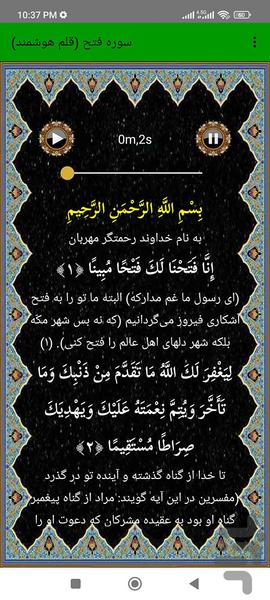 10:37 PM
سوره فتح (قلم هوشمند)
0m,2s
بِسْمِ اللَّهِ الرَّحْمَنِ الرَّحِيمِ
به نام خداوند رحمتگر مهربان
إِنَّا فَتَحْنَا لَكَ فَتْحًا مُبِينًا ﴿۱﴾
(ای رسول ما غم مدارکه) البتهٔ ما تو را به فتح
آشکاری فیروز می‌گردانیم (که نه بس شهر مکه
بلکه شهر دلهای اهل عالم را فتح کنی). (۱)
لِيَغْفِرَ لَكَ اللَّهُ مَا تَقَدَّمَ مِنْ ذَنْبِكَ وَمَا
تَأَخَّرَ وَيُتِمَّ نِعْمَتَهُ عَلَيْكَ وَيَهْدِيَكَ
صِرَاطًا مُسْتَقِيمًا ﴿۲﴾
تا خدا از گناه گذشته و آینده تو در گذرد
(مفسرین در این آیه گویند: مراد از گناه پیغمبر
گناه او بود به عقیده مشرکان که دعوت او را